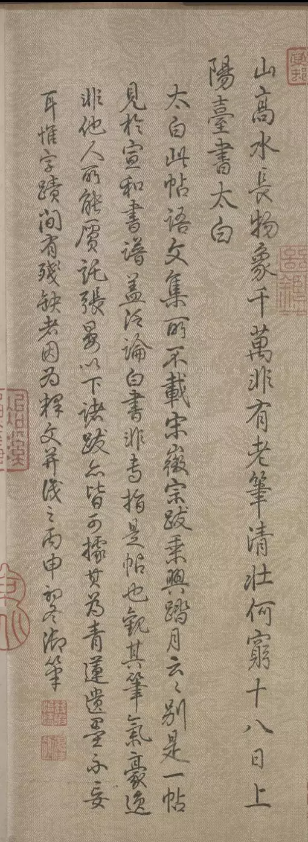 山高水長物象千萬非有老筆清壯何窮十八日上
陽臺書太白
太白此帖語文集所不載宋徽宗跋乘興踏月云云別是一帖
見於宣和書譜蓋泛論白書非專指是帖也觀其筆氣豪逸
非他人所能贗託張晏以下諸跋亦皆可據其為青蓮遺墨不妄
耳惟字蹟間有殘缺者因為釋文并識之丙申初冬御筆